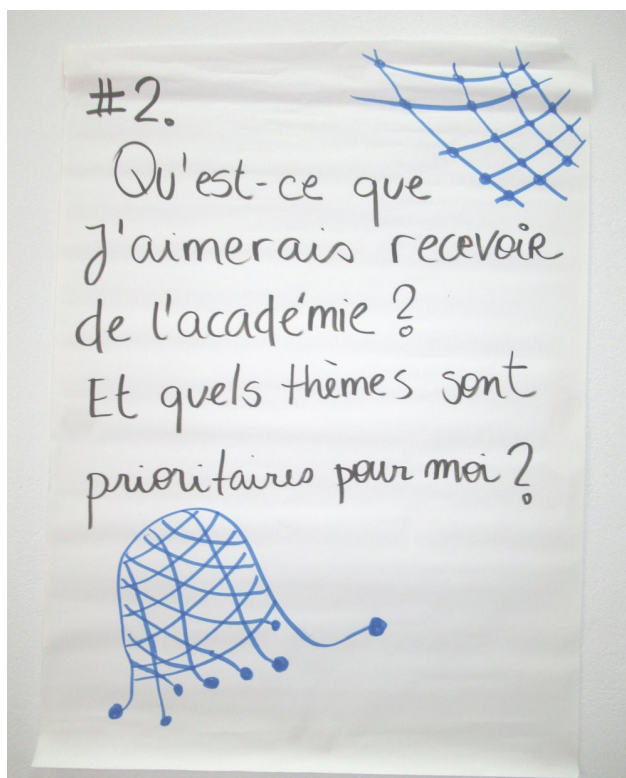 #2.
Qu'est-ce que
J'aimerais recevoir
de l'académie ?
Et quels thèmes sont
prioritaires pour moi ?